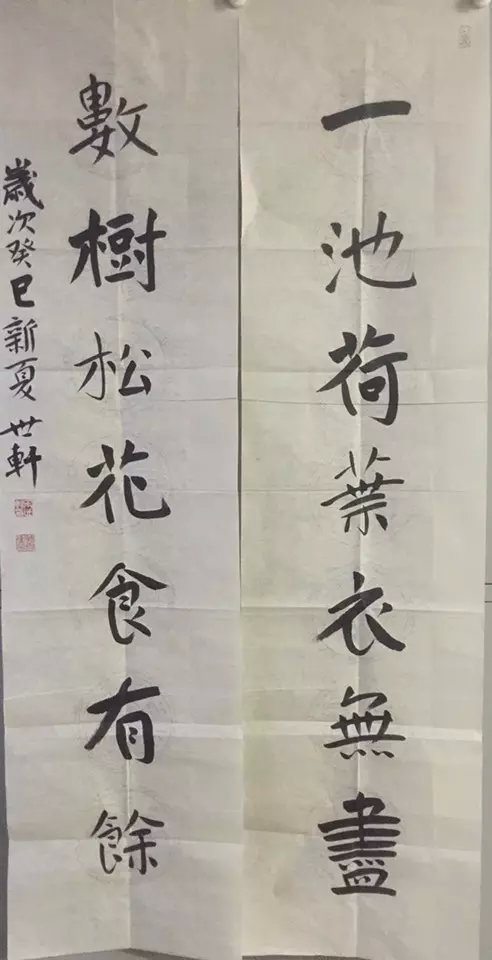 一池荷葉衣無盡
數樹松花食有餘
歲次癸巳新夏 世軒